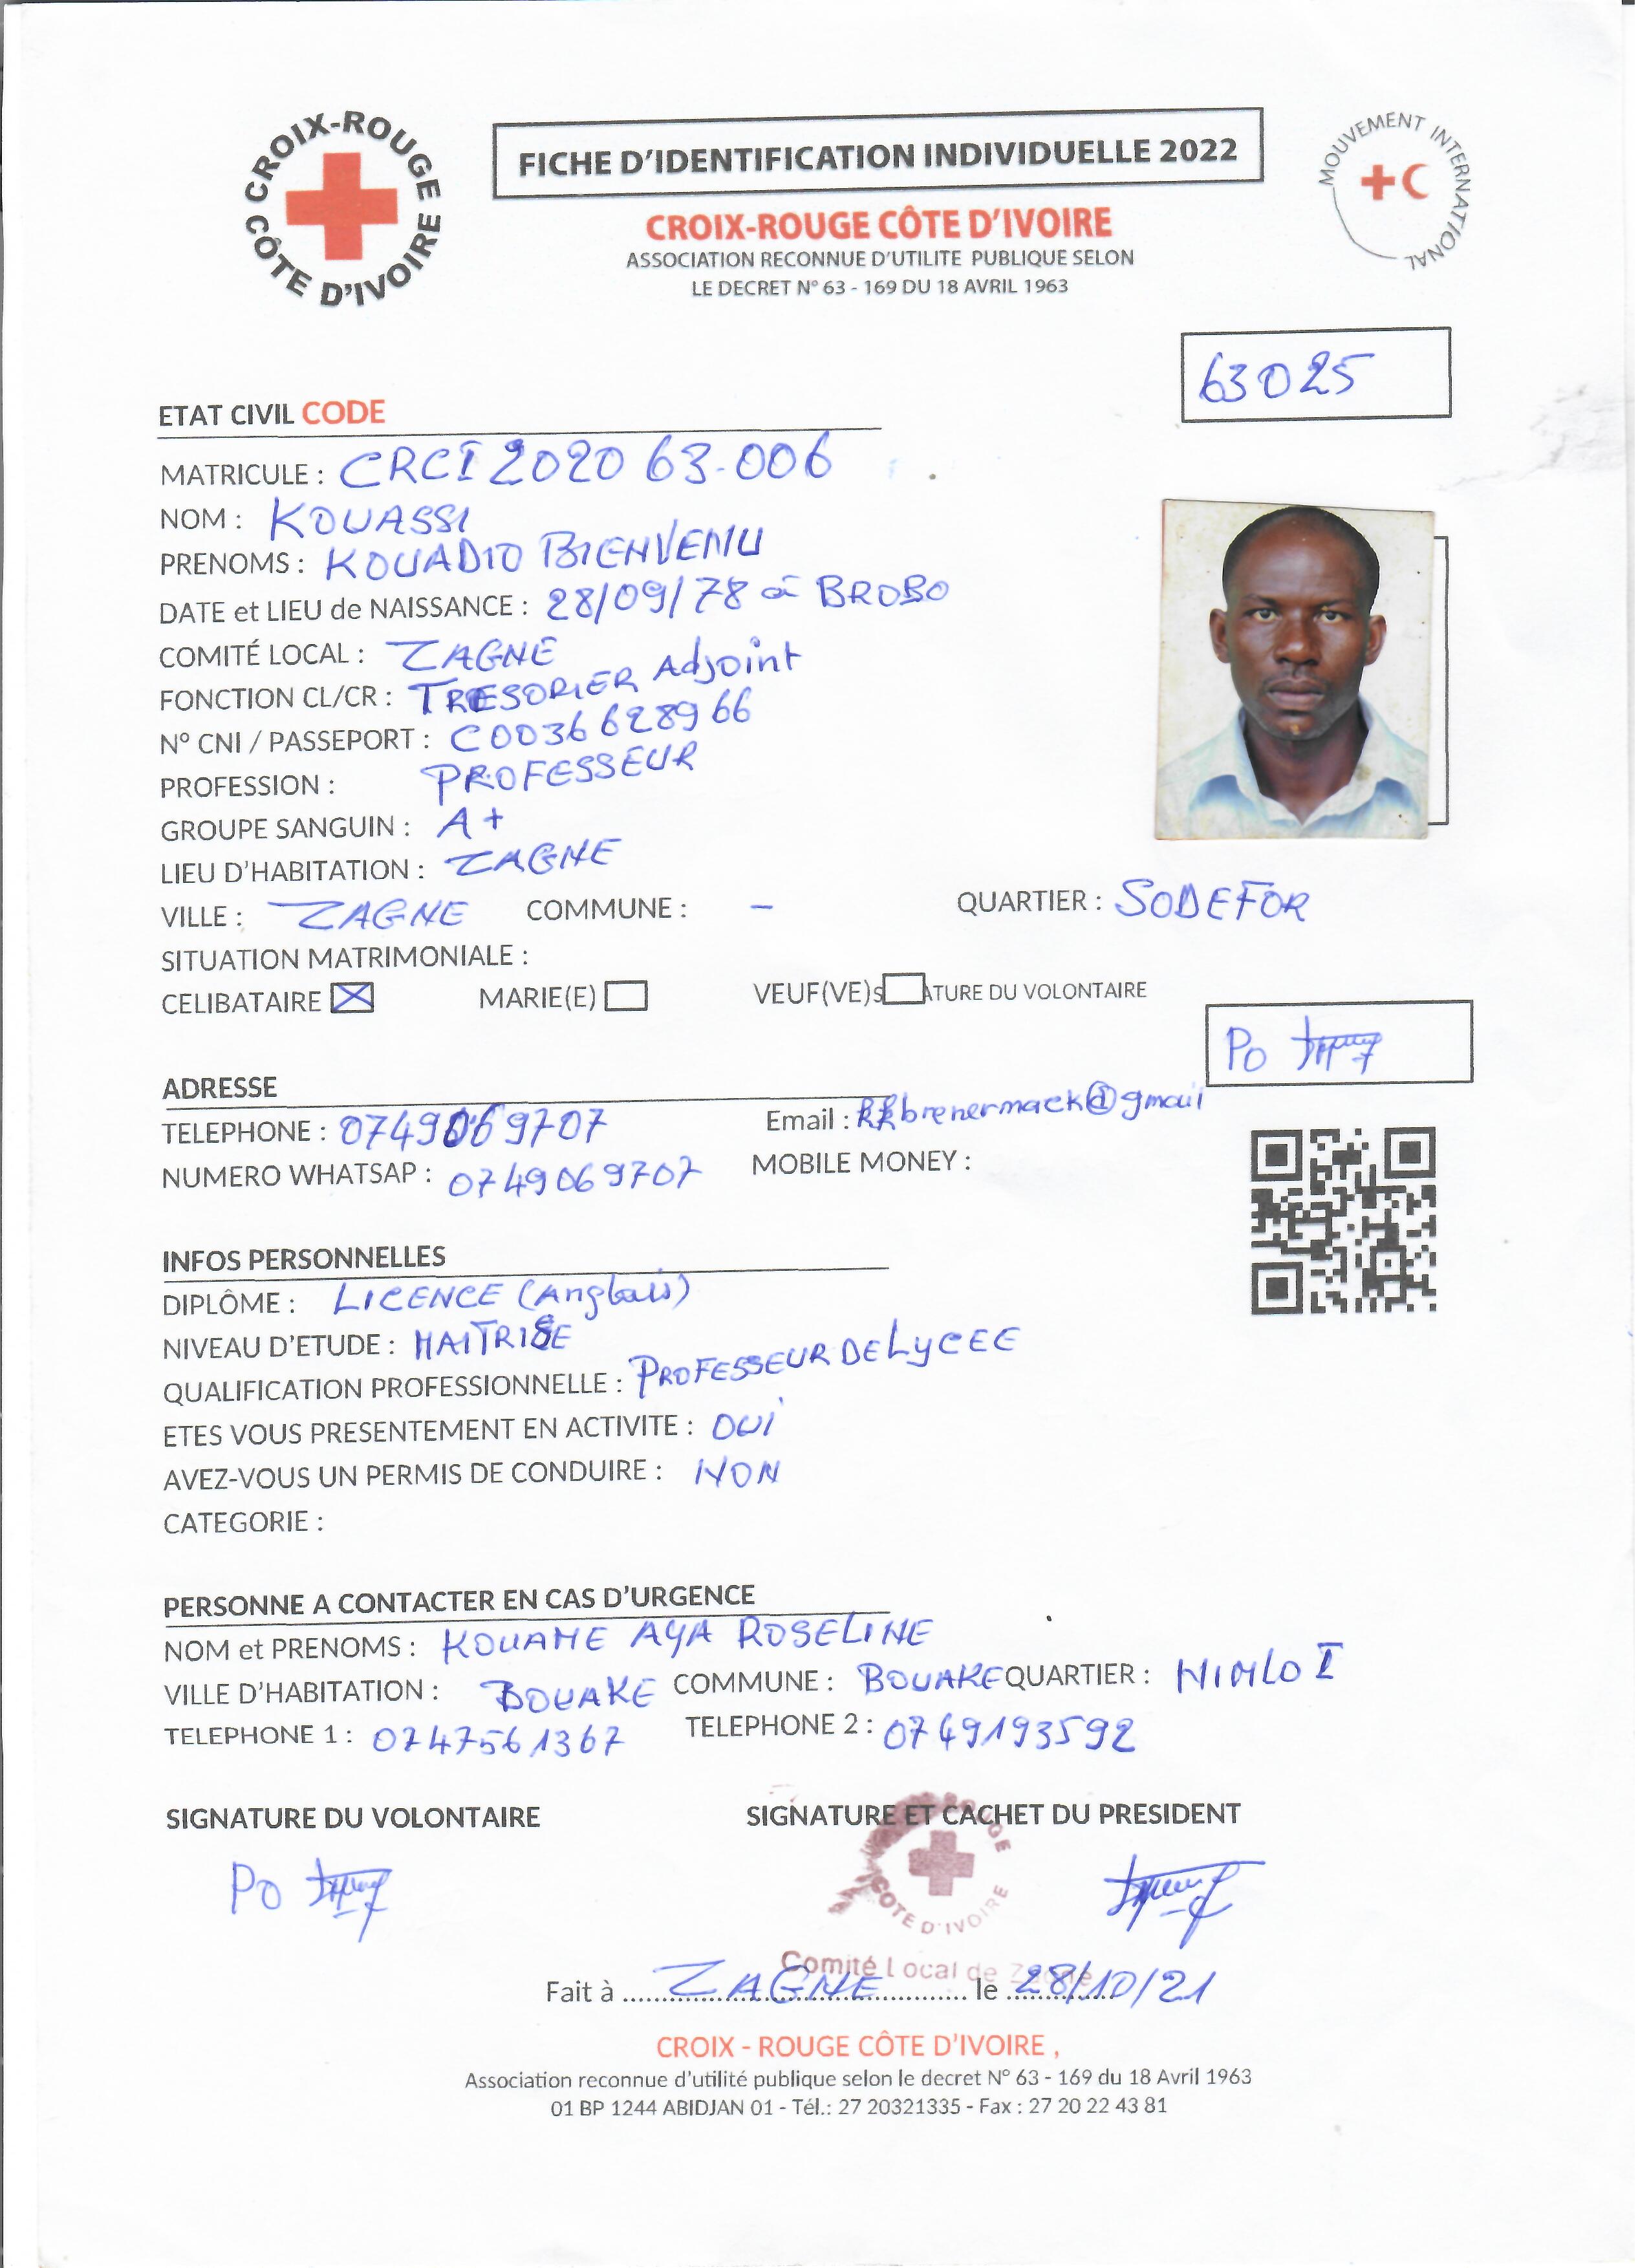 CROIX-ROUGE
CÔTE D'IVOIRE
FICHE D'IDENTIFICATION INDIVIDUELLE 2022
MOUVEMENT INTERNATIONAL
CROIX-ROUGE CÔTE D'IVOIRE
ASSOCIATION RECONNUE D'UTILITE PUBLIQUE SELON
LE DECRET N° 63 - 169 DU 18 AVRIL 1963
63025
ETAT CIVIL CODE
MATRICULE : CRCI 2020 63-006
NOM : KOUASSI
PRENOMS : KOUADIO BIENVENU
DATE et LIEU de NAISSANCE : 28/09/78 à BROBO
COMITÉ LOCAL : ZAGNE
FONCTION CL/CR : TRESORIER Adjoint
N° CNI / PASSEPORT : C0036628966
PROFESSION : PROFESSEUR
GROUPE SANGUIN : A+
LIEU D'HABITATION : ZAGNE
VILLE : ZAGNE COMMUNE : - QUARTIER : SODEFOR
SITUATION MATRIMONIALE :
CELIBATAIRE MARIE(E) VEUF(VE) ATURE DU VOLONTAIRE
PO
ADRESSE
TELEPHONE : 0749069707 Email : kkbrenermack@gmail
NUMERO WHATSAP : 0749069707 MOBILE MONEY :
INFOS PERSONNELLES
DIPLÔME : LICENCE (Anglais)
NIVEAU D'ETUDE : MAITRISE
QUALIFICATION PROFESSIONNELLE : PROFESSEUR DE LyCEE
ETES VOUS PRESENTEMENT EN ACTIVITE : OUI
AVEZ-VOUS UN PERMIS DE CONDUIRE : NON
CATEGORIE :
PERSONNE A CONTACTER EN CAS D'URGENCE
NOM et PRENOMS : KOUAME AYA ROSELINE
VILLE D'HABITATION : BOUAKE COMMUNE : BOUAKE QUARTIER : NIMLO I
TELEPHONE 1 : 0747561367 TELEPHONE 2 : 0749193592
SIGNATURE DU VOLONTAIRE SIGNATURE ET CACHET DU PRESIDENT
PO
ROUGE
COTE D'IVOIRE
Comité Local de Zagné
Fait à ZAGNE le 28/10/21
CROIX - ROUGE CÔTE D'IVOIRE ,
Association reconnue d'utilité publique selon le decret N° 63 - 169 du 18 Avril 1963
01 BP 1244 ABIDJAN 01 - Tél.: 27 20321335 - Fax : 27 20 22 43 81